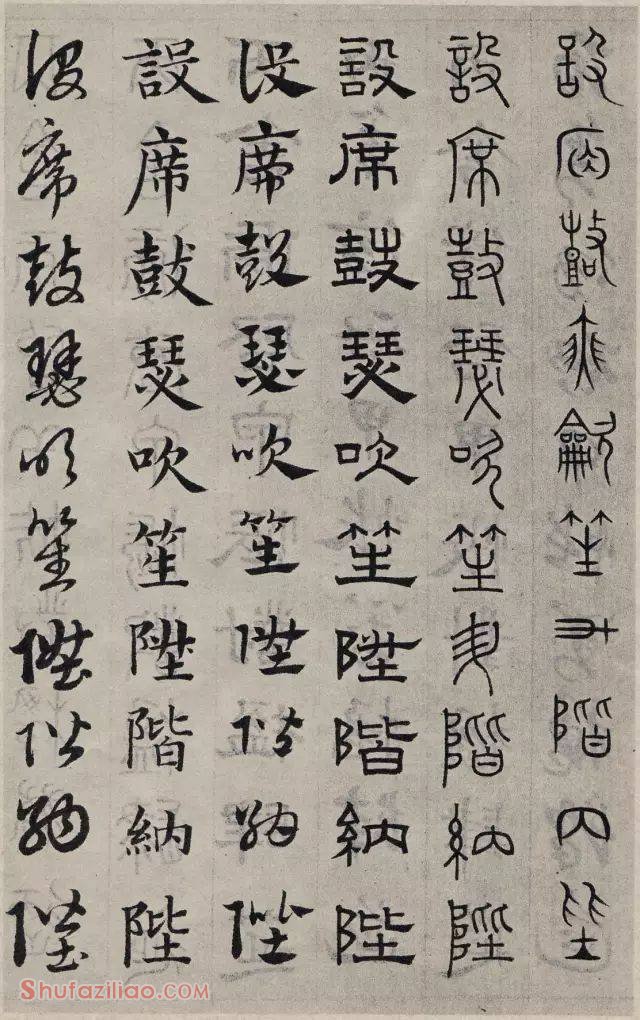 設席鼓瑟龡笙升階内陛
設席鼓瑟吹笙升階納陛
設席鼓瑟吹笙陞階納陛
設席鼓瑟吹笙陞階納陛
設席鼓瑟吹笙陞階納陛
設席鼓瑟吹笙陞階納陛
Shufaziliao.COM